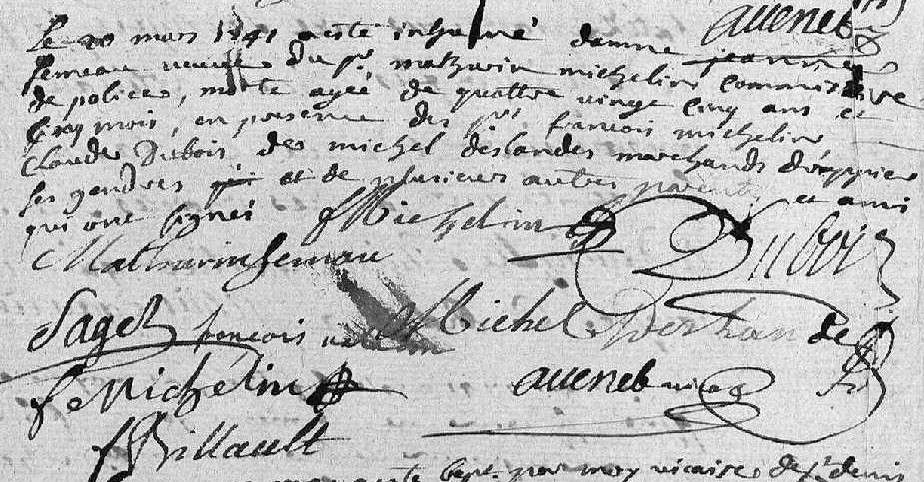 auenet
Le 20 mars 1741 a esté inhumé damne jeanne
femeau veuve du sr mathurin michelin commissere
de police, morte agée de quattre vingt cinq ans et
cinq mois, en presence des srs francois michelin
Claude Dubois, de michel deslandes marchands drappier
ses gendres et de plusieurs autres parents et ami
qui ont signé f Michelin
Mathurin femeau Dubois
Saget francois Michel Deslande
f Michelin auenet vicaire
f Billault
bapt. par moy vicaire de St denis